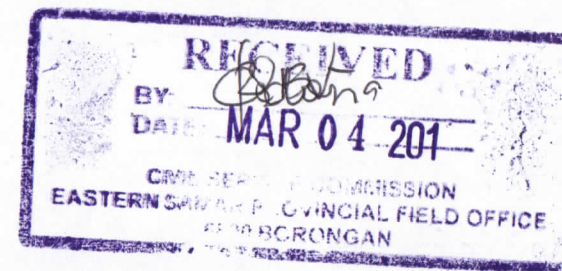 RECEIVED
BY:
DATE: MAR 04 201
CIVIL SERVICE COMMISSION
EASTERN SAMAR PROVINCIAL FIELD OFFICE
BORONGAN